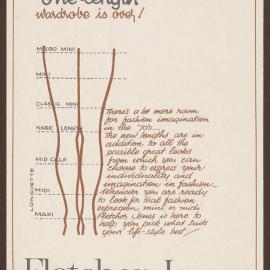 One-length
wardrobe is over!
MICRO MINI
MINI
CLASSIC MINI
KNEE LENGTH
MID CALF
LONGUETTE
MIDI
MAXI
There's a lot more room
for fashion imagination
in the '70's...
The new lengths are in
addition to all the
possible great looks
from which you can
choose to express your
individuality and
imagination in fashion...
Whenever you are ready
to look for that fashion
expression, mini or midi
Fletcher Jones is here to
help you pick what suits
your life-style best